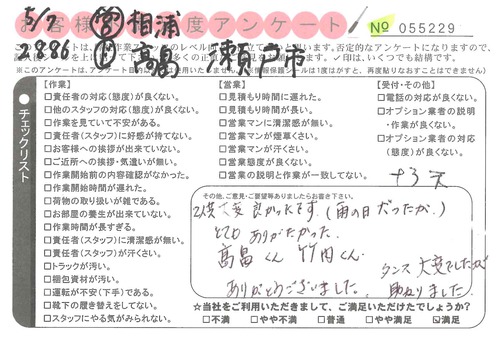 5/7
2886
お客様満足度アンケート
営 相浦
高畠
瀬戸市
№ 055229
✓印は、いくつでも結構です。
チェックリスト
【作業】
□責任者の対応(態度)が良くない。
□他のスタッフの対応(態度)が良くない。
□作業を見ていて不安がある。
□責任者(スタッフ)に好感が持てない。
□お客様への挨拶が出来ていない。
□ご近所への挨拶・気遣いが無い。
□作業開始前の内容確認がなかった。
□作業開始時間が遅れた。
□荷物の取り扱いが雑である。
□お部屋の養生が出来ていない。
□作業時間が長すぎる。
□責任者(スタッフ)に清潔感が無い。
□責任者(スタッフ)が汗くさい。
□トラックが汚い。
□梱包資材が汚い。
□運転が安(下手)である。
□靴下の履き替えをしていない。
□スタッフにやる気がみられない。
【営業】
□見積もり時間に遅れた。
□見積もり時間が長い。
□営業マンに清潔感が無い。
□営業マンが煙草くさい。
□営業マンが汗くさい。
□営業態度が良くない。
□営業の説明と作業が一致してない。
【受付・その他】
□電話の対応が良くない。
□オプション業者の説明
・作業が良くない。
□オプション業者の対応
(態度)が良くない。
その他、ご意見・ご要望等ありましたらお書き下さい。
良かったです。(雨の日だったが。)
とても ありがたかった。
高畠くん 竹内くん
ありがとうございました。
タンス 大変でしたが
助かりました。
☆当社をご利用いただきまして、ご満足いただけたでしょうか?
□不満 □やや不満 □普通 □やや満足 ☑満足